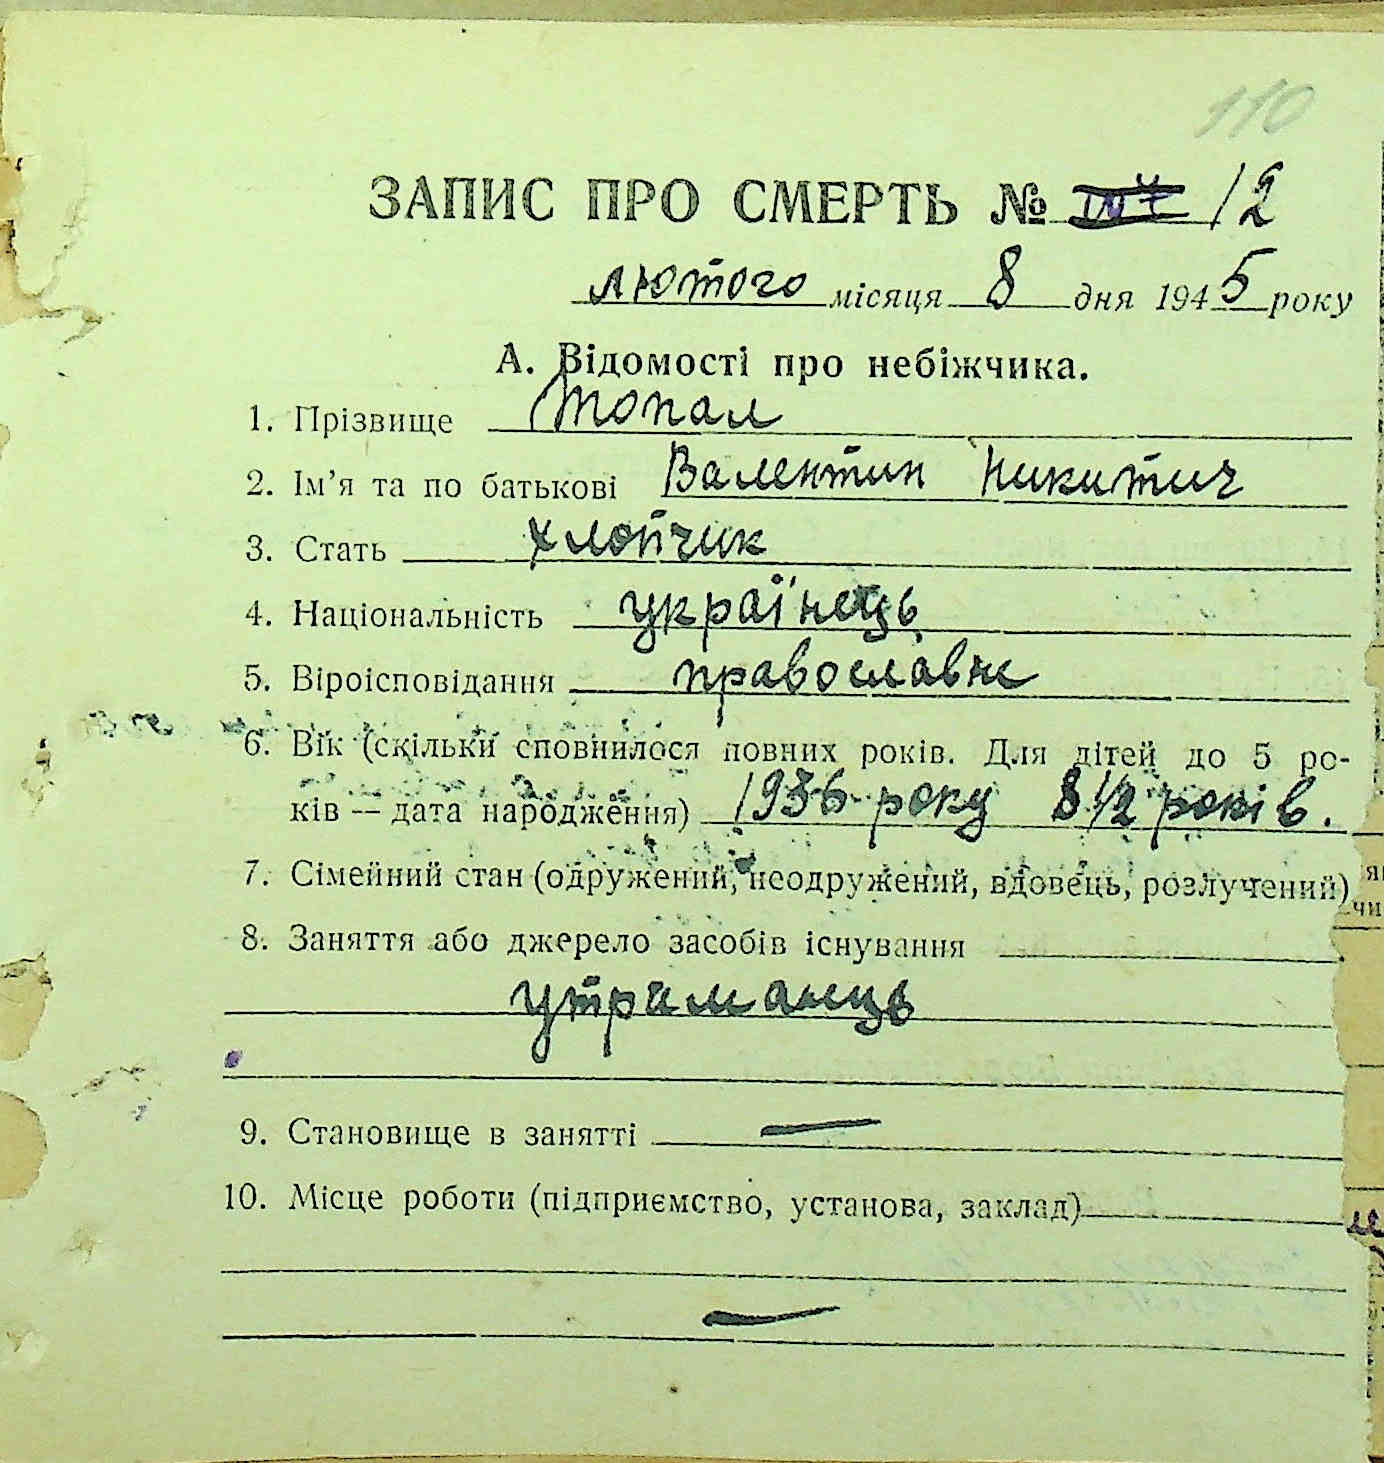 110
ЗАПИС ПРО СМЕРТЬ № 12
лютого місяця 8 дня 1945 року
А. Відомості про небіжчика.
1. Прізвище Топал
2. Ім’я та по батькові Валентин Никитич
3. Стать хлопчик
4. Національність українець
5. Віроісповідання православне
6. Вік (скільки сповнилося повних років. Для дітей до 5 ро-
ків — дата народження) 1936 року 8 1/2 років.
7. Сімейний стан (одружений, неодружений, вдовець, розлучений)
8. Заняття або джерело засобів існування
утриманець
9. Становище в занятті —
10. Місце роботи (підприємство, установа, заклад)
—